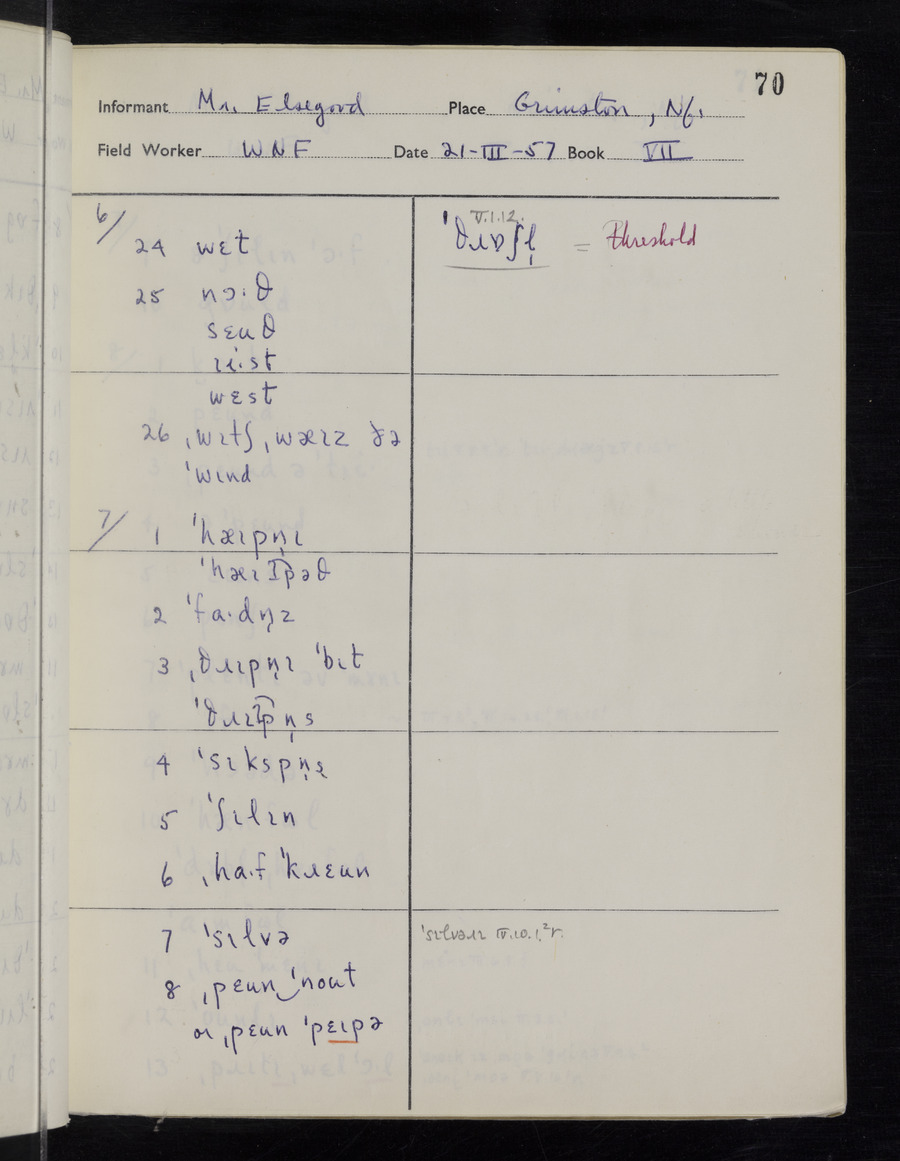 70
Informant Mr. Elsegood Place Grimston, Nf.
Field Worker WNF Date 21-III-57 Book VII
6/
24 wɛt
25 nɔ·θ
sɛuθ
ɹi·st
wɛst
26 ˌwɪtʃ ˌwæɪz ðə
ˈwɪnd
7/ 1 ˈhæɪpn̩ɪ
2 ˈfa·dn̩z
3 ˌθɹɪpn̩ɪ ˈbɪt
4 ˈsɪkspn̩s
5 ˈʃɪlɪn
6 ˌha·f ˈkɹɛun
7 ˈsɪlvə
8 ˌpɛun‿ˈnout
oɪ ˌpɛun ˈpɛɪpə
V.1.12.
ˈθɹɒʃl̩ = threshold
ˈsɪlvəɹɪ IV.10.1,²r.